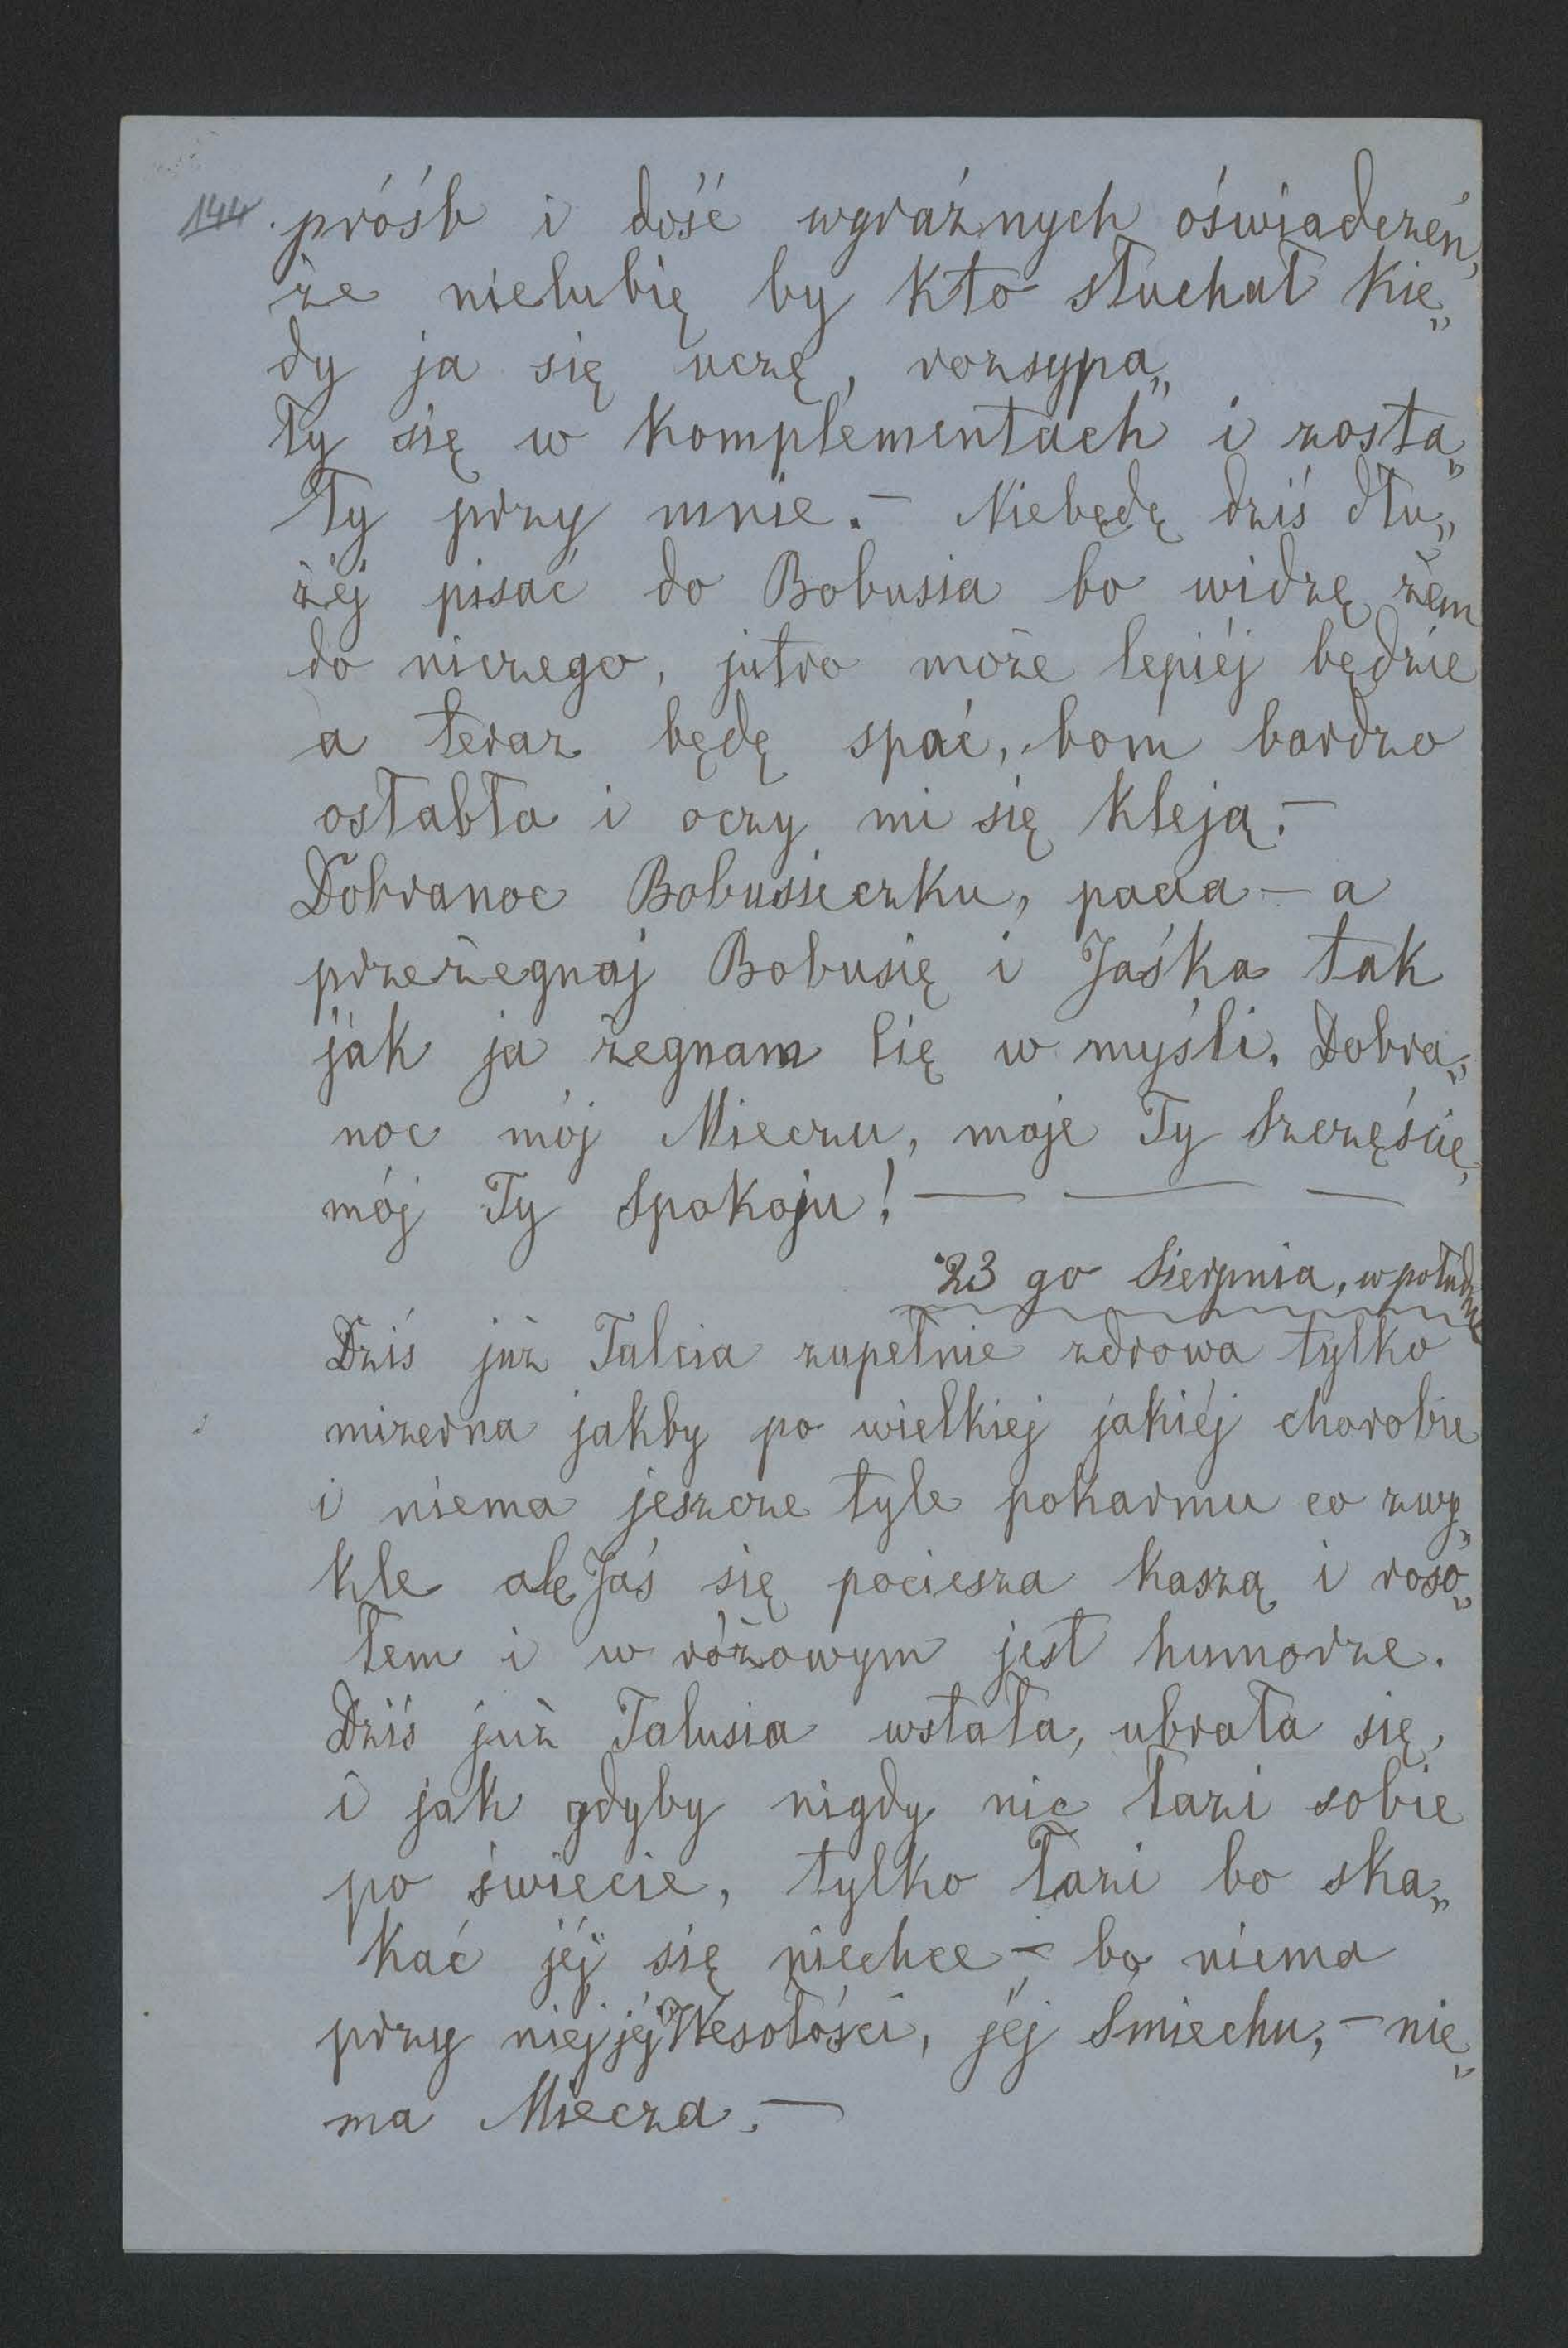 144. próśb i dość wyraźnych oświadczeń,
że nielubię by kto słuchał kie„
dy ja się uczę, rozsypa„
ły się w komplementach i zosta„
ły przy mnie. – Niebędę dziś dłu„
żéj pisać do Bobusia bo widzę żem
do niczego, jutro może lepiéj będzie
a teraz będę spać, bom bardzo
osłabła i oczy mi się kleją. –
Dobranoc Bobusieczku, paaa – a
przeżegnaj Bobusię i Jaśka tak
jak ja żegnam Cię w myśli. Dobra„
noc mój Mieczu, moje Ty Szczęście,
mój Ty Spokoju! — — —
23 go Sierpnia, w południe
Dziś już Talcia zupełnie zdrowa tylko
mizerna jakby po wielkiej jakiéj chorobie
i niema jeszcze tyle pokarmu co zwy„
kle ale Jaś się pociesza kaszą i roso„
łem i w różowym jest humorze.
Dziś już Talusia wstała, ubrała się,
i jak gdyby nigdy nic łazi sobie
po świecie, tylko łazi bo ska„
kać jéj się niechce – bo niema
przy niej jéj Wesołości, jéj Śmiechu, – nie„
ma Miecza. —